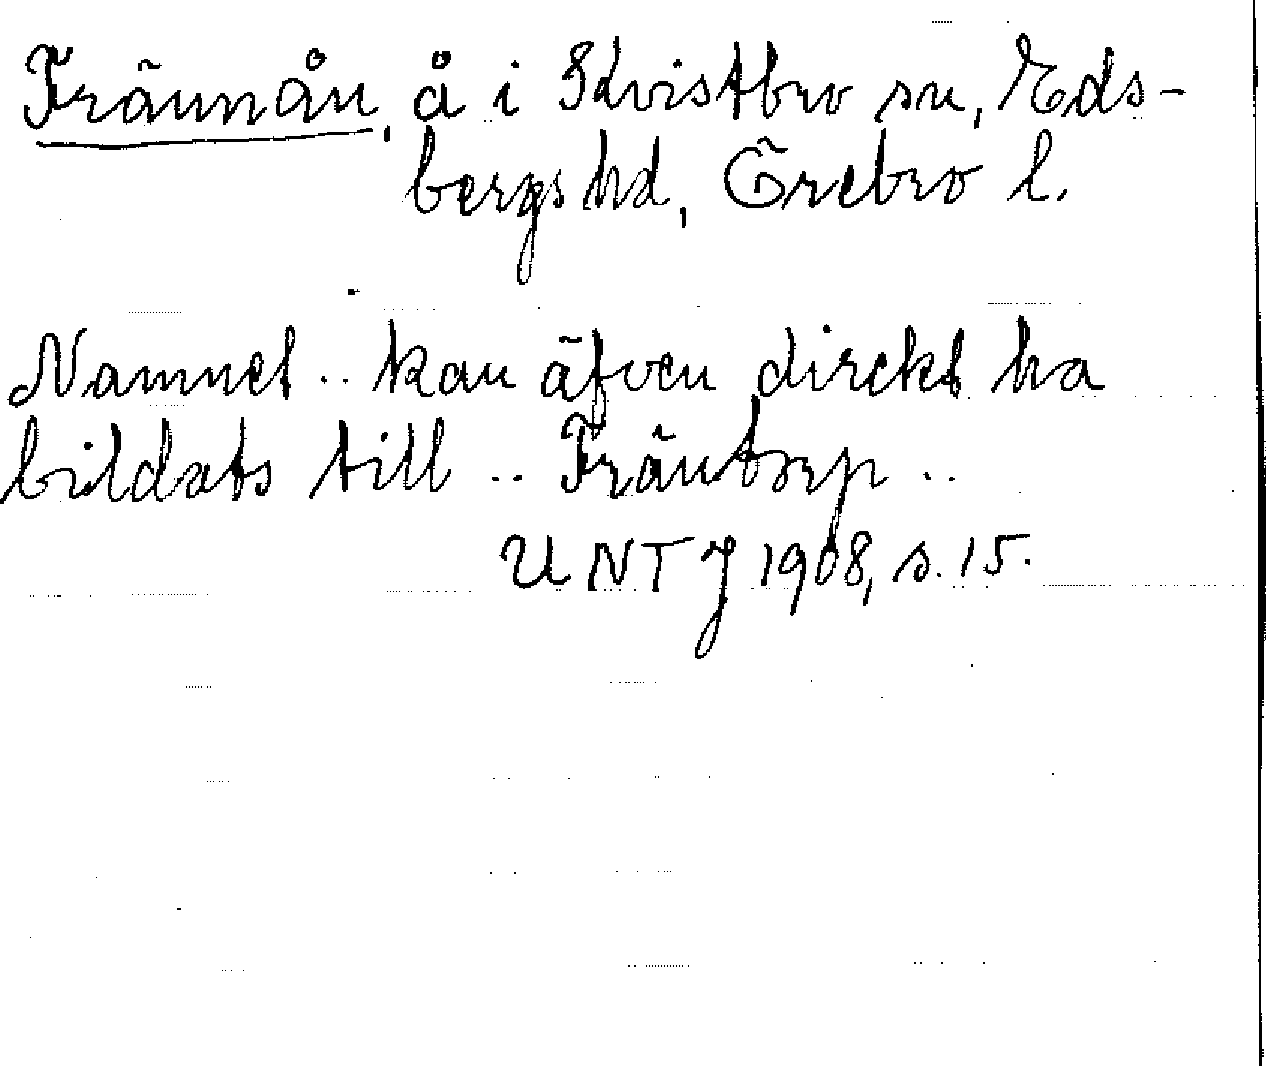 Frännån, å i Kvistbro sn, Eds-
bergs hd, Örebro l.
Namnet .. kan äfven direkt ha
bildats till .. Fräntorp ..
UNTJ 1908, s. 15.